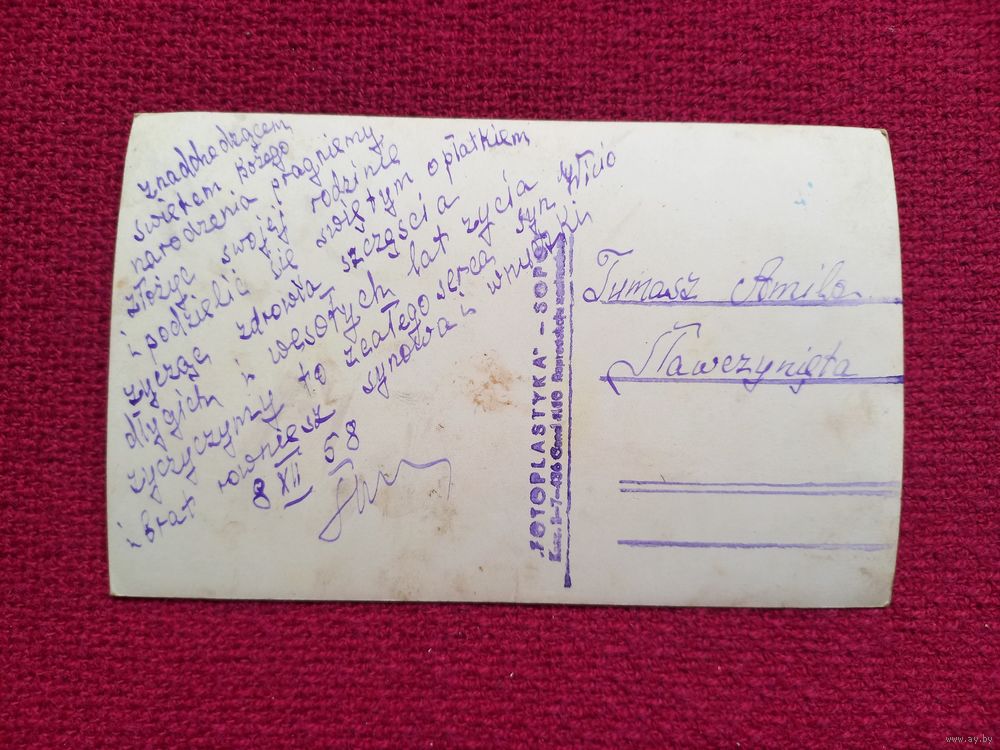 Znadchodzącem
świętem Bożego
narodzenia pragniemy
złożyć swojej rodzinie
i podzielić się świętym opłatkiem
życząc zdrowia szczęścia
dłygich i wesołych lat życia
życzymy to zcałego serca syn
i Brat rowniesz synowa i wnuczki
8 XII 58
"FOTOPLASTYKA" – SOPOT
Tumasz Amilo
Tławczynięta
www.ay.by